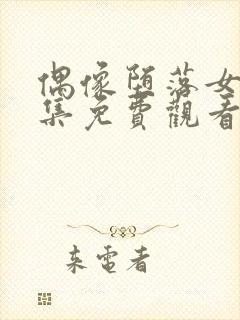 偶像堕落女
集免費觀看
来電者